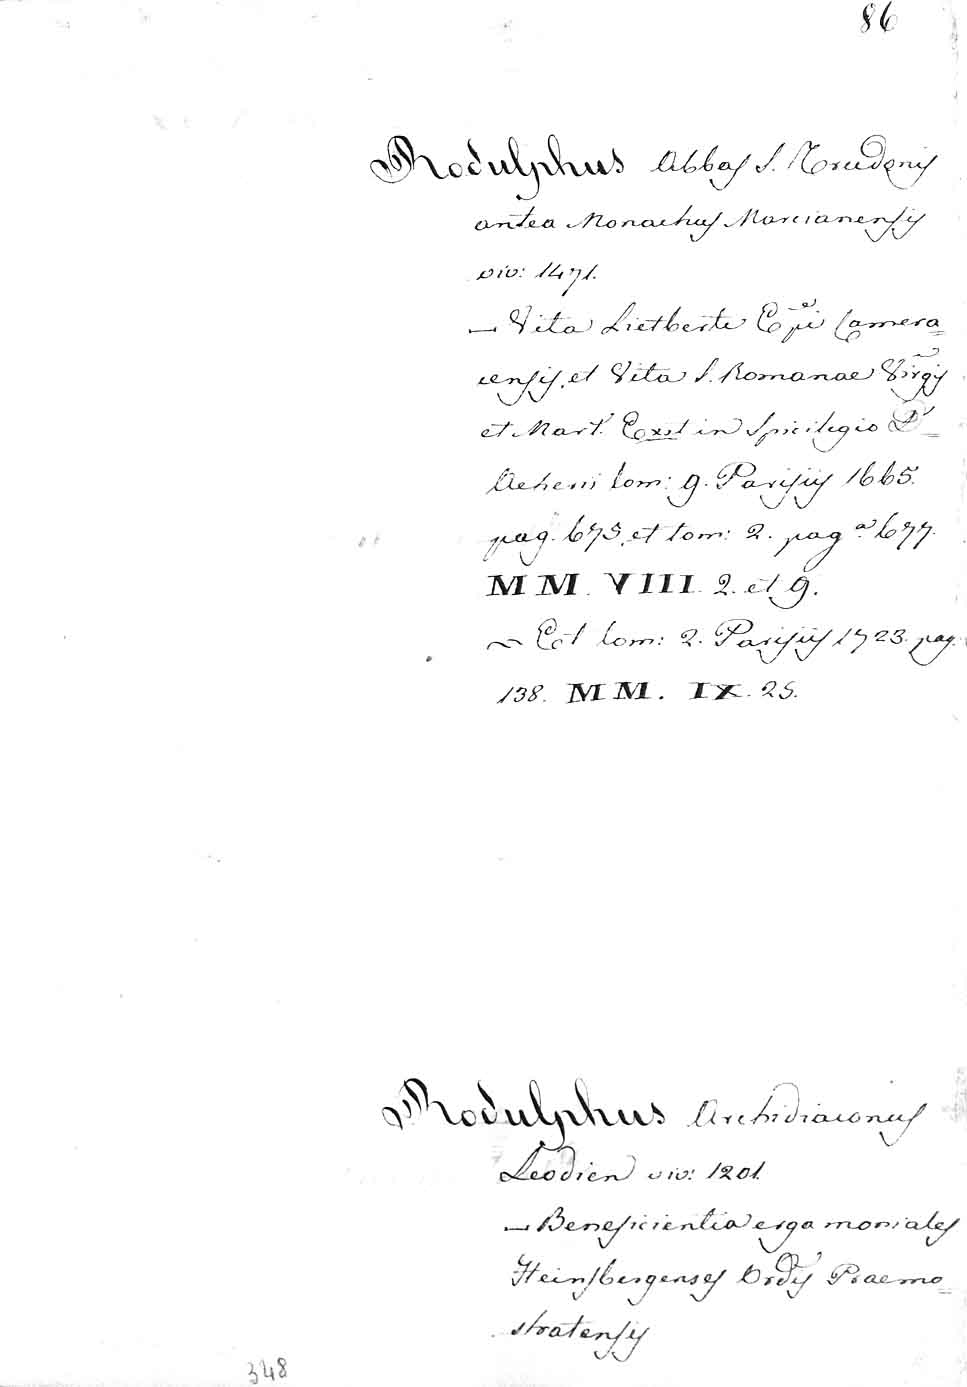 86
Rodulphus Abbas S. Trudonis
antea Monachus Marcianensis
viv: 1471.
— Vita Lietberti Epi Camera=
censis, et Vita S. Romanae Virgis
et Mart. Exst in Spicilegio D'=
Acherii tom: 9. Parisiis 1665.
pag. 675, et tom: 2. pag.a 677.
MM. VIII. 2. et 9.
~ Est tom: 2. Parisiis 1723. pag.
138. MM. IX. 25.
Rodulphus Archidiaconus
Leodien viv: 1201.
— Beneficientia erga moniales
Heinsbergenses Ordis Praemo=
stratensis
348